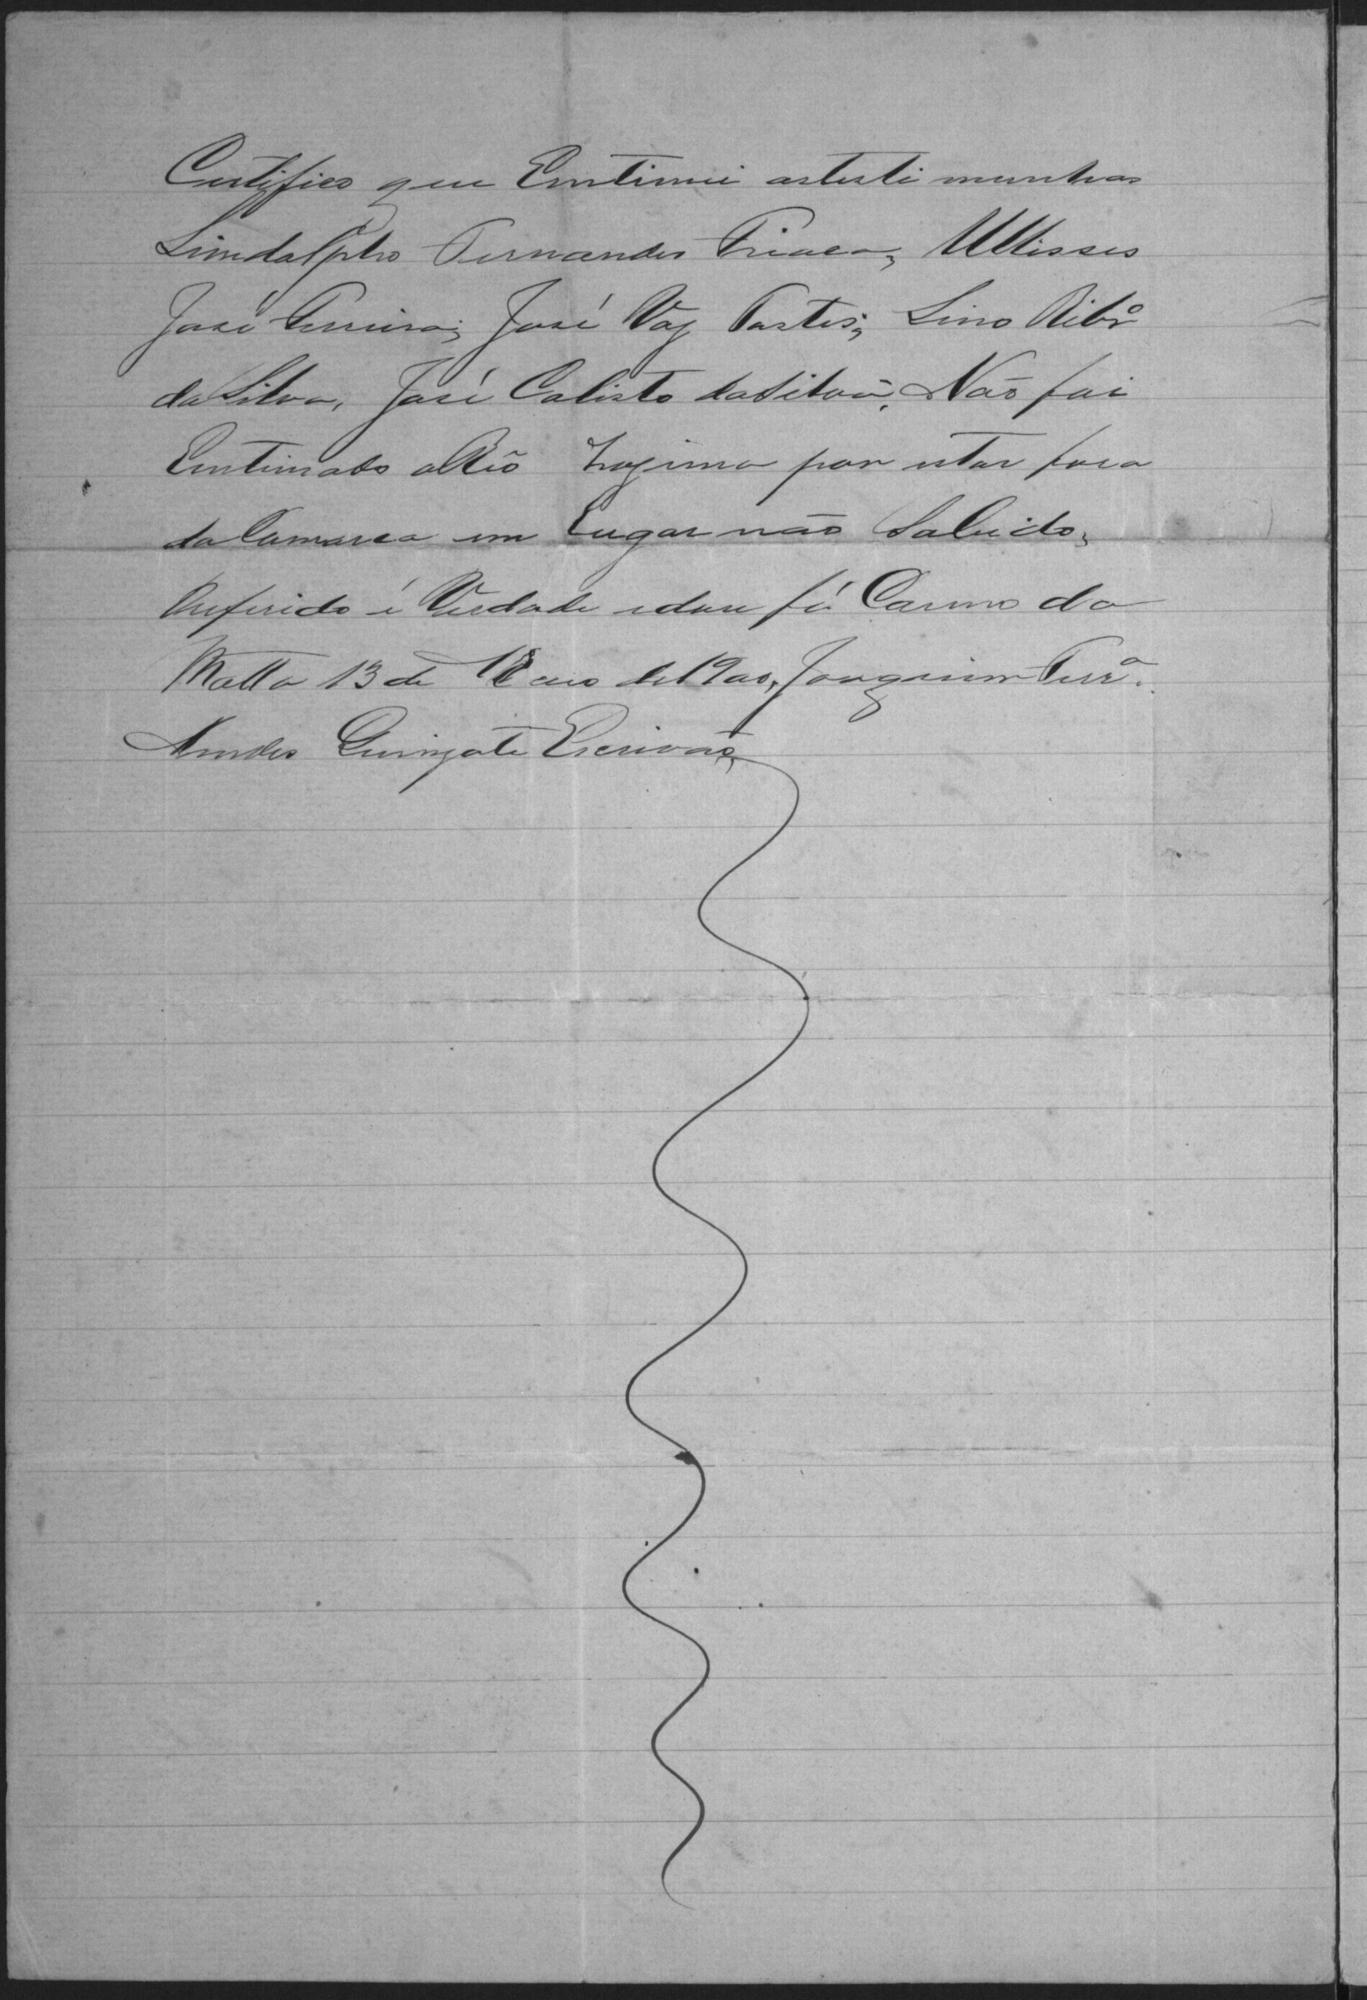 Certifico que Emtimei astesti munhas
Limdolpho Fernandes Ulisses
José Ferreira, José Vaz Lino Ribrº
da Silva, José Calisto da Silva, Não foi
Emtimado oReo por estar fora
da Comarca em Lugar não Sabido,
Oreferido é Verdade edou fé Carmo da
Matta 13 de Maio de 1900, Joaquim Ferrª.
Mendes Escrivão,